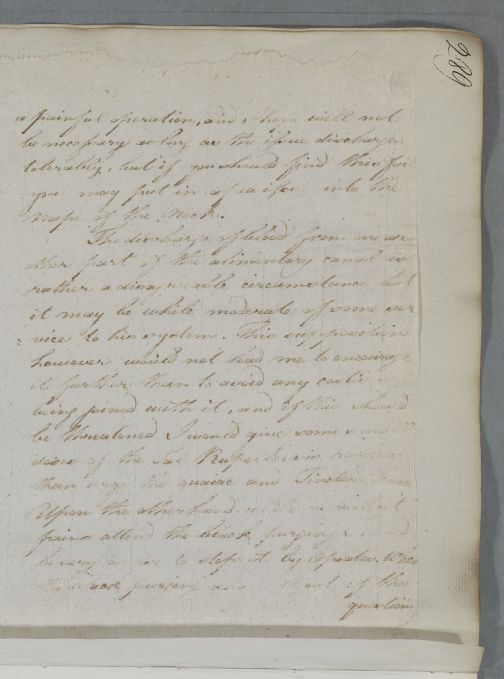 289
a painful operation, and I hope will not
be necessary as long as the issue discharges
tolerably, but if you should find this fail
you may put in a pea issue into the
Nape of the Neck.
The discharge of blood from one or
other part of the alimentary canal is
rather a disagreeable circumstance but
it may be while moderate of some ser
=vice to his system. This supposition
however would not lead me to encourage
it further than to avoid any
being joined with it, and if this should
be threatened I would give some small
doses of the Sal Rupellensis rather
than urge the guaiac and Tincture
Upon the other hand
pains attend the black purging
be very to stop it by opiates. When
the black purging out of the
question